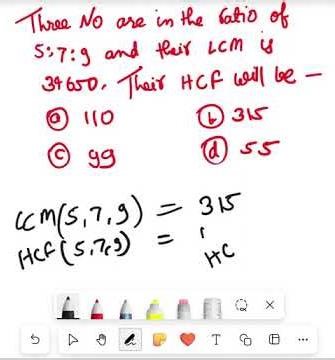 Three No are in the ratio of
5:7:9 and their LCM is
34650. Their HCF will be —
ⓐ 110 ⓑ 315
ⓒ 99 ⓓ 55
LCM(5,7,9) = 315
HCF(5,7,9) = 1
HC
T